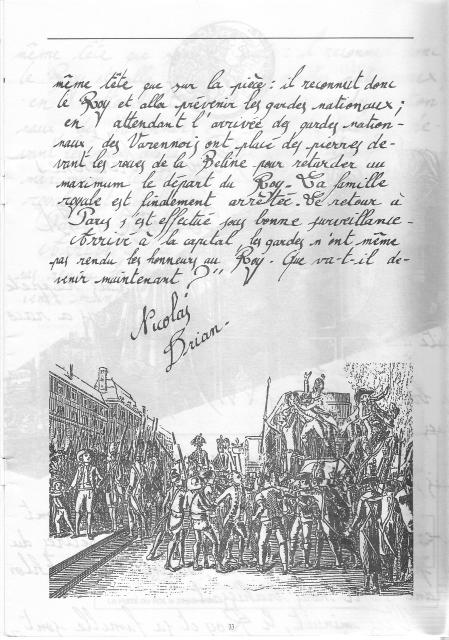 même tête que sur la pièce : il reconnut donc
le Roy et alla prévenir les gardes nationaux ;
en attendant l'arrivée des gardes nation-
naux, des Varennois ont placé des pierres de-
vant les roues de la Beline pour retarder au
maximum le départ du Roy. La famille
royale est finalement arrêtée. Le retour à
Paris s'est effectué sous bonne surveillance.
Arrivé à la capital, les gardes n'ont même
pas rendu les honneurs au Roy. Que va-t-il de-
venir maintenant ?"
Nicolas
Brian.
33